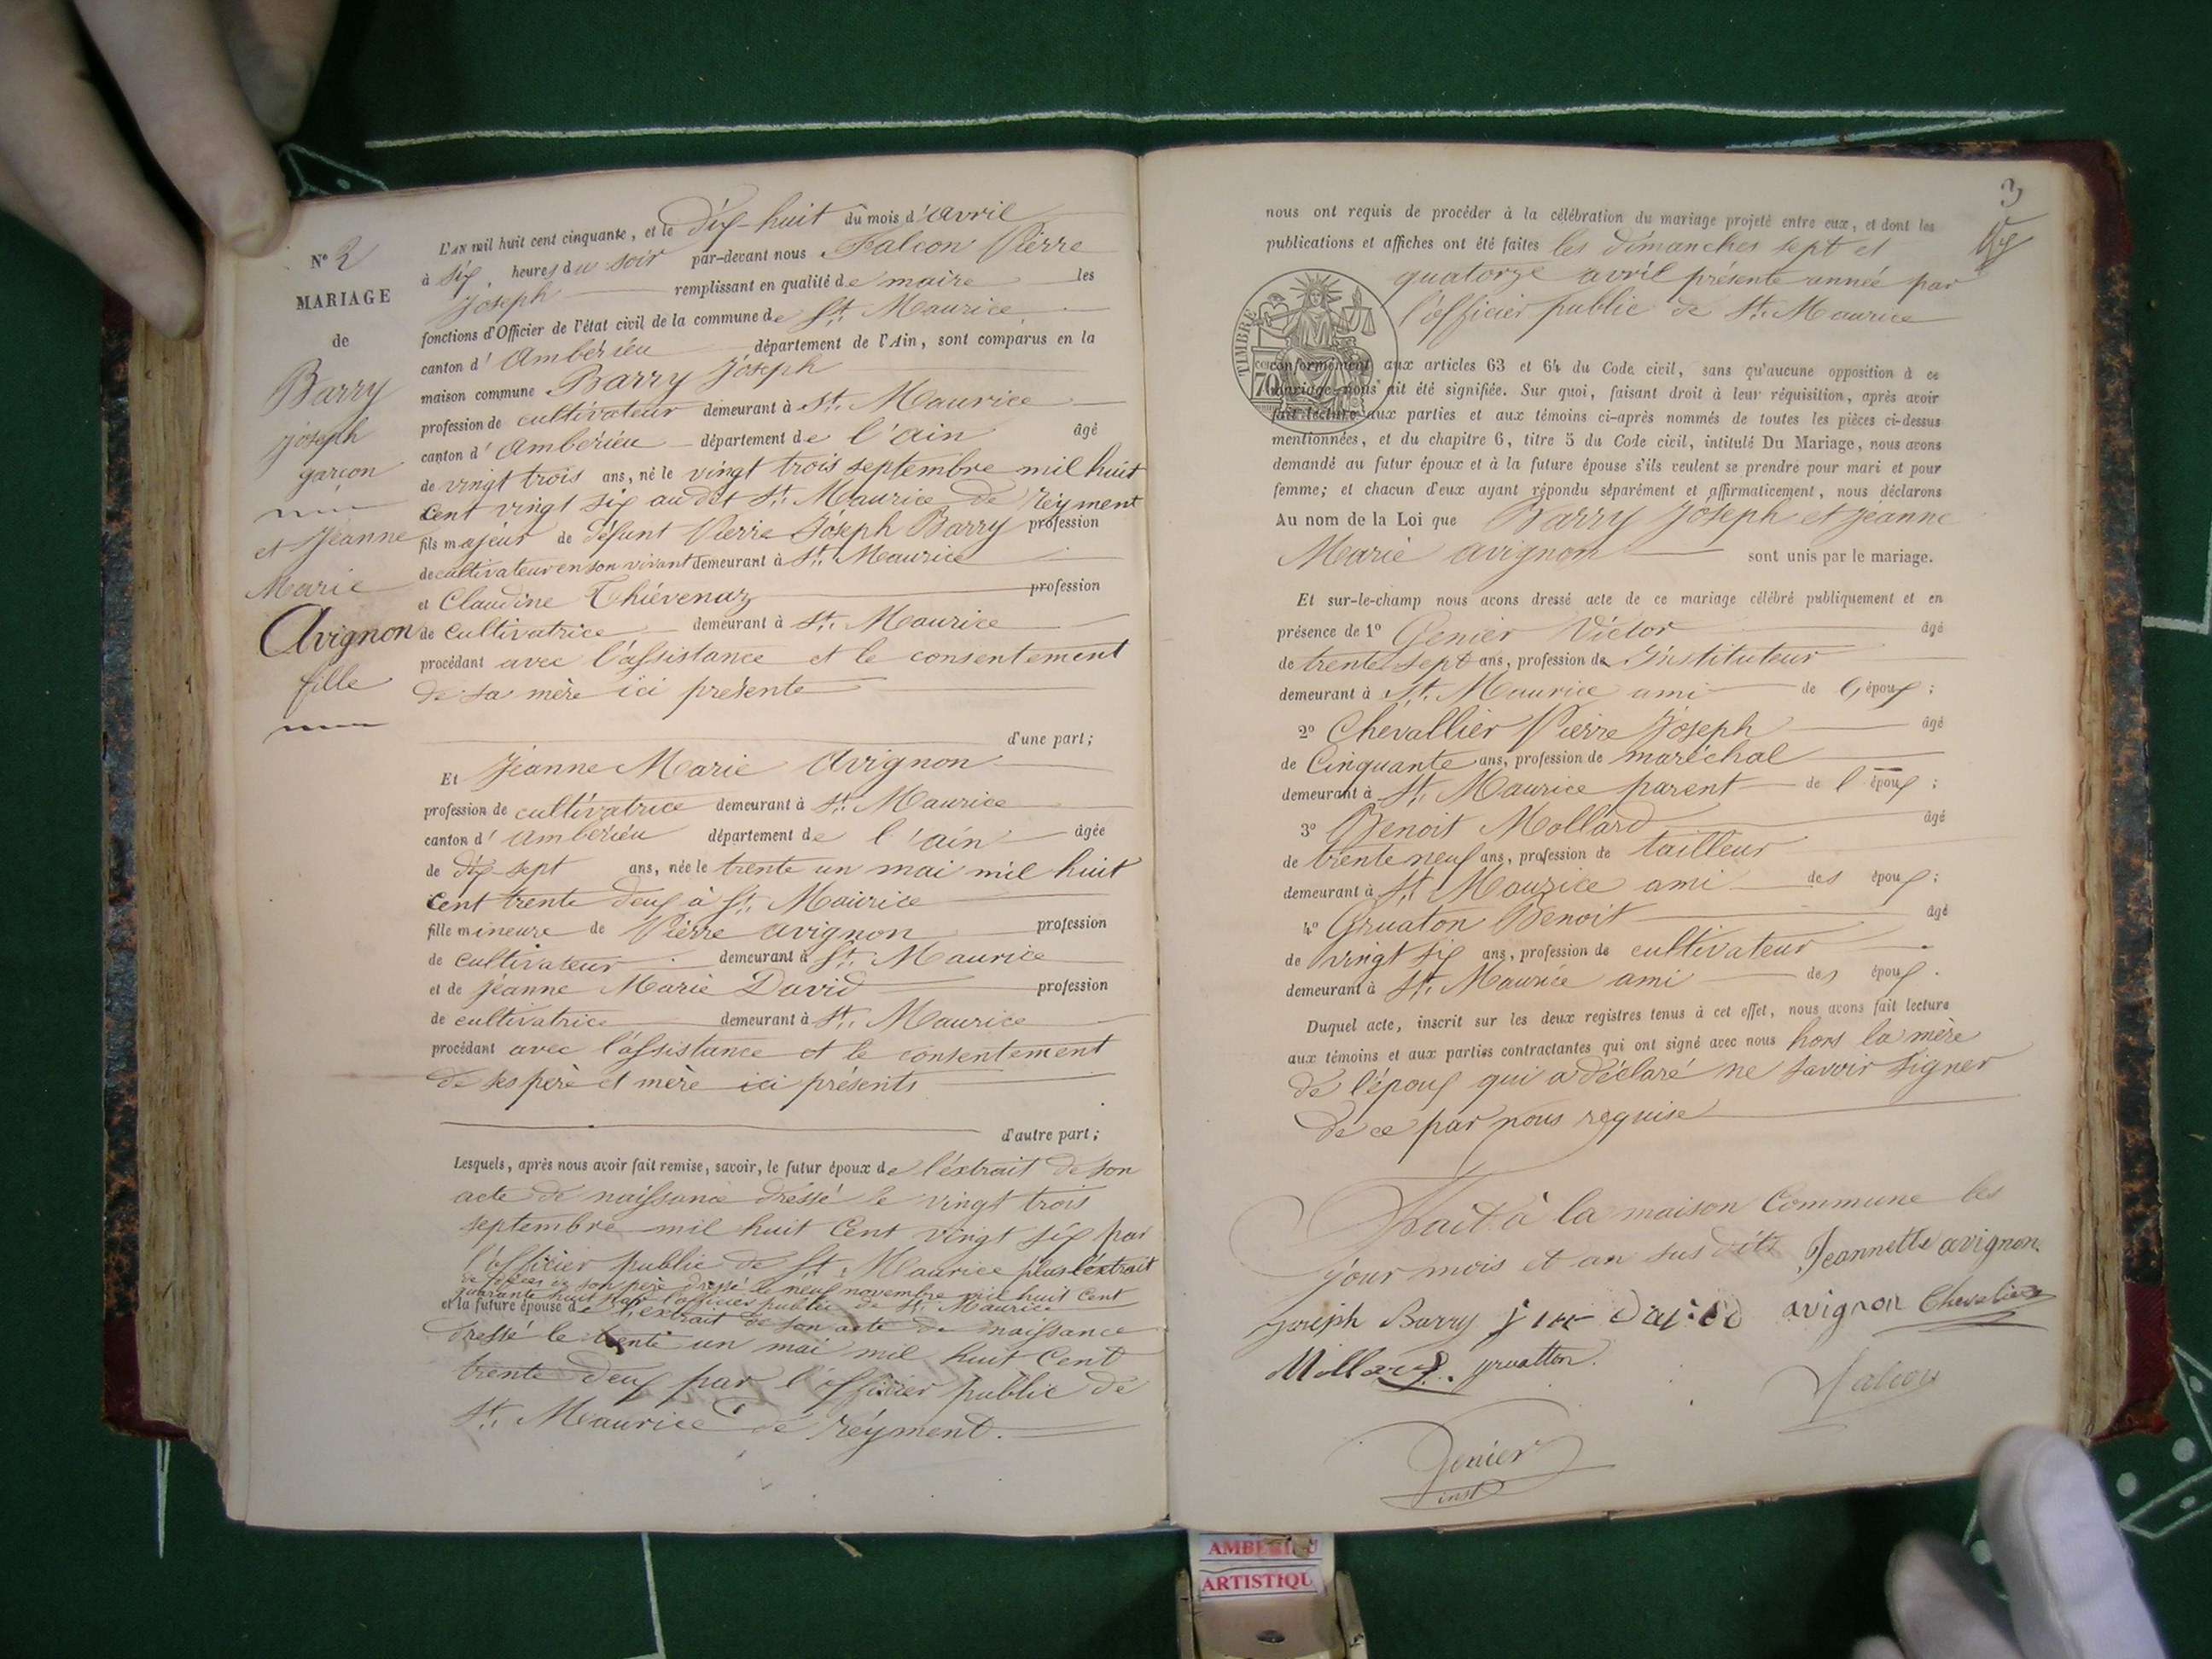 N° 2
MARIAGE
de
Barry
joseph
garçon
et Jeanne
Marie
Avignon
fille
L'AN mil huit cent cinquante, et le dix-huit du mois d'avril
à six heures du soir par-devant nous Falcon Pierre
Joseph remplissant en qualité de maire les
fonctions d'Officier de l'état civil de la commune de St. Maurice
canton d'Ambérieu département de l'Ain, sont comparus en la
maison commune Barry Joseph
profession de cultivateur demeurant à St. Maurice
canton d'Ambérieu département de l'ain âgé
de vingt trois ans, né le vingt trois septembre mil huit
cent vingt six au dit St. Maurice de réyment
fils majeur de défunt Pierre Joseph Barry profession
de cultivateur en son vivant demeurant à St. Maurice
et Claudine Thiévenaz profession
de cultivatrice demeurant à St. Maurice
procédant avec l'assistance et le consentement
de sa mère ici présente
d'une part;
Et Jeanne Marie Avignon
profession de cultivatrice demeurant à St. Maurice
canton d'Ambérieu département de l'ain âgée
de dix-sept ans, née le trente un mai mil huit
cent trente deux à St. Maurice
fille mineure de Pierre avignon profession
de cultivateur demeurant à St. Maurice
et de jeanne Marie David profession
de cultivatrice demeurant à St. Maurice
procédant avec l'assistance et le consentement
de ses père et mère ici présents
d'autre part;
Lesquels, après nous avoir fait remise, savoir, le futur époux de l'extrait de son
acte de naissance dressé le vingt trois
septembre mil huit cent vingt six par
l'officier public de St. Maurice plus l'extrait
de décès de son père dressé le neuf novembre mil huit cent
quarante huit par l'officier public de St. Maurice
et la future épouse de l'extrait de son acte de naissance
dressé le trente un mai mil huit cent
trente deux par l'officier public de
St. Maurice de réyment.
3
nous ont requis de procéder à la célébration du mariage projeté entre eux, et dont les
publications et affiches ont été faites les dimanches sept et
quatorze avril présente année par
l'officier public de St. Maurice
TIMBRE
70
conformément aux articles 63 et 64 du Code civil, sans qu'aucune opposition à ce
mariage nous ait été signifiée. Sur quoi, faisant droit à leur réquisition, après avoir
fait lecture aux parties et aux témoins ci-après nommés de toutes les pièces ci-dessus
mentionnées, et du chapitre 6, titre 5 du Code civil, intitulé Du Mariage, nous avons
demandé au futur époux et à la future épouse s'ils veulent se prendre pour mari et pour
femme; et chacun d'eux ayant répondu séparément et affirmativement, nous déclarons
Au nom de la Loi que Barry Joseph et Jeanne
Marie avignon sont unis par le mariage.
Et sur-le-champ nous avons dressé acte de ce mariage célébré publiquement et en
présence de 1° Genier Victor âgé
de trente sept ans, profession de Instituteur
demeurant à St. Maurice ami de l'époux;
2° Chevallier Pierre Joseph âgé
de Cinquante ans, profession de maréchal
demeurant à St. Maurice parent de l'époux;
3° Benoit Mollard âgé
de trente neuf ans, profession de tailleur
demeurant à St. Maurice ami des époux;
4° Gruaton Benoit âgé
de vingt six ans, profession de cultivateur
demeurant à St. Maurice ami des époux.
Duquel acte, inscrit sur les deux registres tenus à cet effet, nous avons fait lecture
aux témoins et aux parties contractantes qui ont signé avec nous hors la mère
de l'époux qui a déclaré ne savoir signer
de ce par nous requise
Fait à la maison Commune les
jour mois et an sus dits Jeannette avignon
joseph Barry David avignon Chevalier
Mollard. gruatton.
Falcon
Genier
inst
AMBERIEU
ARTISTIQU